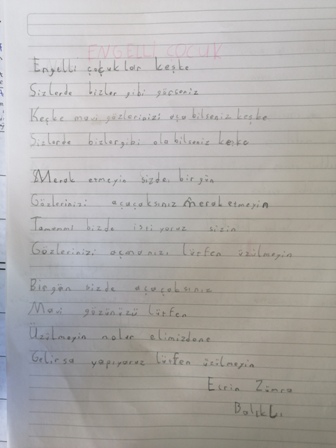 ENGELLİ ÇOCUK
Engelli çocuklar keşke
Sizlerde bizler gibi görseniz
Keşke mavi gözlerinizi aça bilseniz keşke
Sizlerde bizler gibi ola bilseniz keşke
Merak etmeyin bizde bir gün
Gözlerinizi açacaksınız merak etmeyin
Tamammı bizde istiyoruz sizin
Gözlerinizi açmanızı lütfen üzülmeyin
Birgün sizde açacaksınız
Mavi gözünüzü lütfen
Üzülmeyin neler elimizden
Gelirse yapıyoruz lütfen üzülmeyin
Esrin Zümra